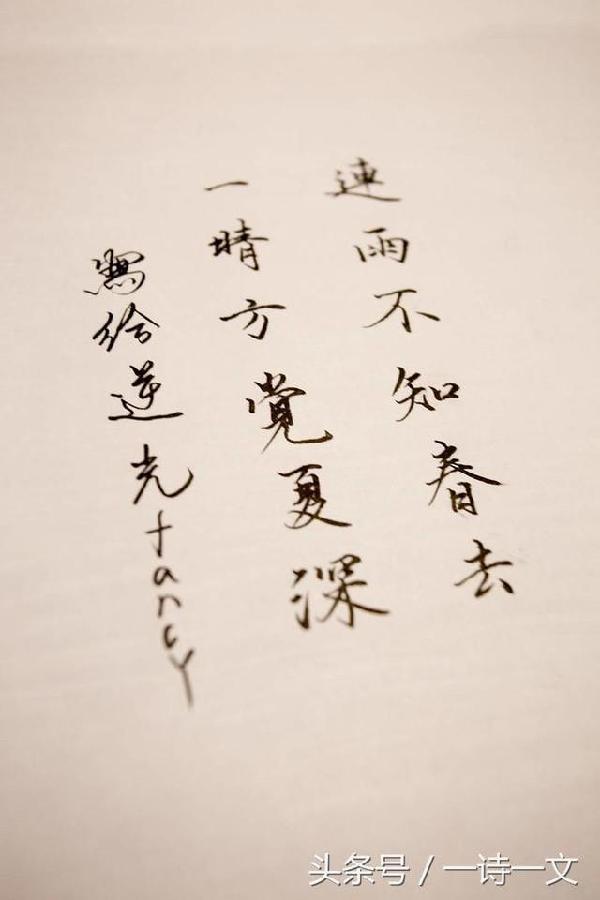 連雨不知春去
一晴方覺夏深
寫给逆光fancy
头条号 / 一诗一文